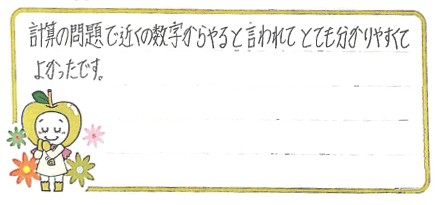 計算の問題で近くの数字からやると言われてとても分かりやすくて
よかったです。